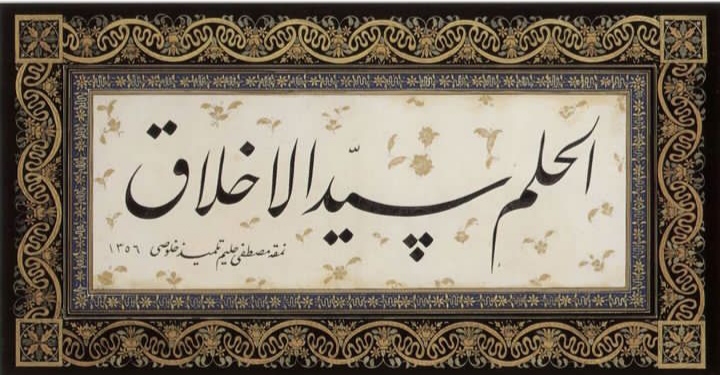 الحلم سيّد الاخلاق
نمقه مصطفى حليم تلميذ خلوصى ١٣٥٦